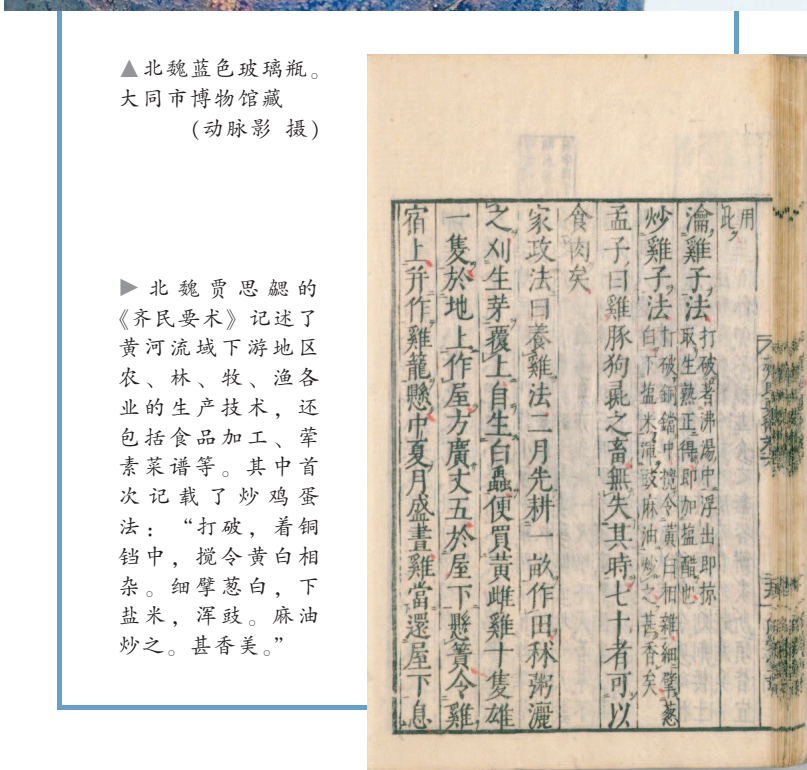 ▲北魏蓝色玻璃瓶。
大同市博物馆藏
(动脉影 摄)
▶ 北魏贾思勰的
《齐民要术》记述了
黄河流域下游地区
农、林、牧、渔各
业的生产技术，还
包括食品加工、荤
素菜谱等。其中首
次记载了炒鸡蛋
法：“打破，着铜
铛中，搅令黄白相
杂。细擘葱白，下
盐米，浑豉。麻油
炒之。甚香美。”
用
此
瀹雞子法 打破者沸湯中浮出即掠
取生熟正得即加鹽醋也
炒雞子法 打破銅鐺中攪令黃白相雜細擘葱
白下鹽米渾豉麻油炒之甚香矣
孟子曰雞豚狗彘之畜無失其時七十者可以
食肉矣
家政法曰養雞法二月先耕一畝作田秫粥灑
之刈生茅覆上自生白蟲便買黃雌雞十隻雄
一隻於地上作屋方廣丈五於屋下懸簀令雞
宿上并作雞籠懸中夏月盛晝雞當還屋下息